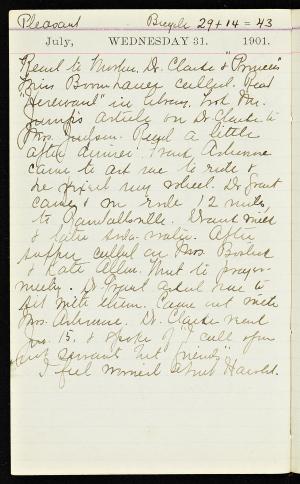 Pleasant Bicycle 29 + 14 = 43
July, WEDNESDAY 31. 1901.
Read to Mother. Dr. Clarke &
Miss Boomhauer called. Read
"Hereward" in library. took Mr.
article on Dr. Clarke to
Mrs. Read a little
after dinner.
came to ask me to ride &
he my wheel. Dr. Grant
came & we rode 12 miles
to Drank milk
& later soda-water. After
supper called on Mrs.
& Kate Allen. Went to prayer-
meeting. Dr. Grant asked me to
sit with them. Came out with
Mrs. Dr. Clarke read
15. & spoke of I call you
not servants but friends"
I feel worried about Harold.